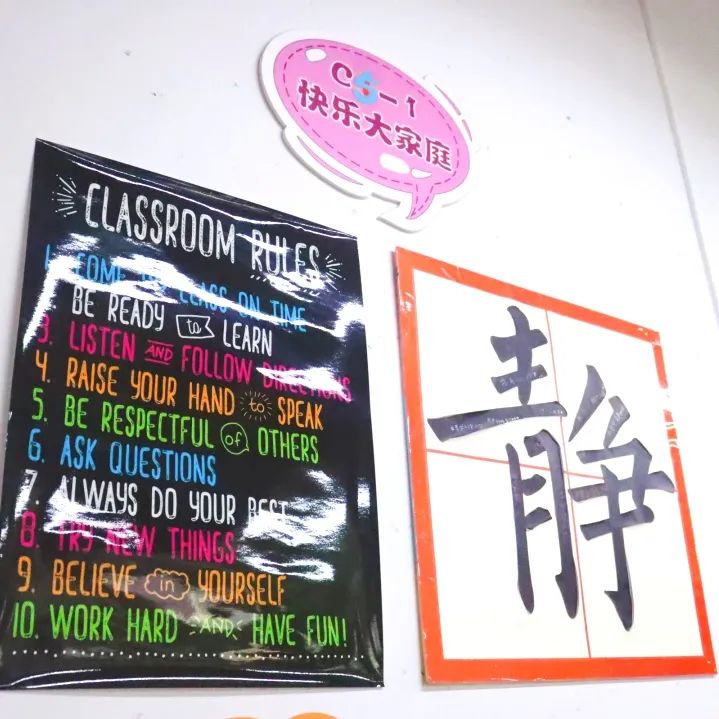 C6-1
快乐大家庭
CLASSROOM RULES
1. COME TO CLASS ON TIME
BE READY to LEARN
3. LISTEN AND FOLLOW DIRECTIONS
4. RAISE YOUR HAND to SPEAK
5. BE RESPECTFUL of OTHERS
6. ASK QUESTIONS
7. ALWAYS DO YOUR BEST
8. TRY NEW THINGS
9. BELIEVE in YOURSELF
10. WORK HARD AND HAVE FUN!
静